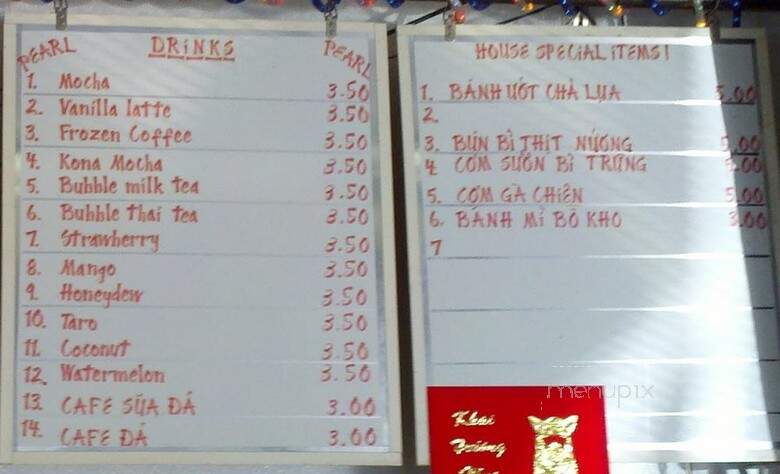 PEARL DRINKS PEARL
1. Mocha 3.50
2. Vanilla latte 3.50
3. Frozen Coffee 3.50
4. Kona Mocha 3.50
5. Bubble milk tea 3.50
6. Bubble thai tea 3.50
7. Strawberry 3.50
8. Mango 3.50
9. Honeydew 3.50
10. Taro 3.50
11. Coconut 3.50
12. Watermelon 3.50
13. CAFE SỮA ĐÁ 3.00
14. CAFE ĐÁ 3.00
HOUSE SPECIAL ITEMS!
1. BÁNH ƯỚT CHẢ LỤA 5.00
2.
3. BÚN BÌ THỊT NƯỚNG 5.00
4 CƠM SƯỜN BÌ TRỨNG 5.00
5. CƠM GÀ CHIÊN 5.00
6. BÁNH MÌ BÒ KHO 3.00
7
menupix
Khai
Trương